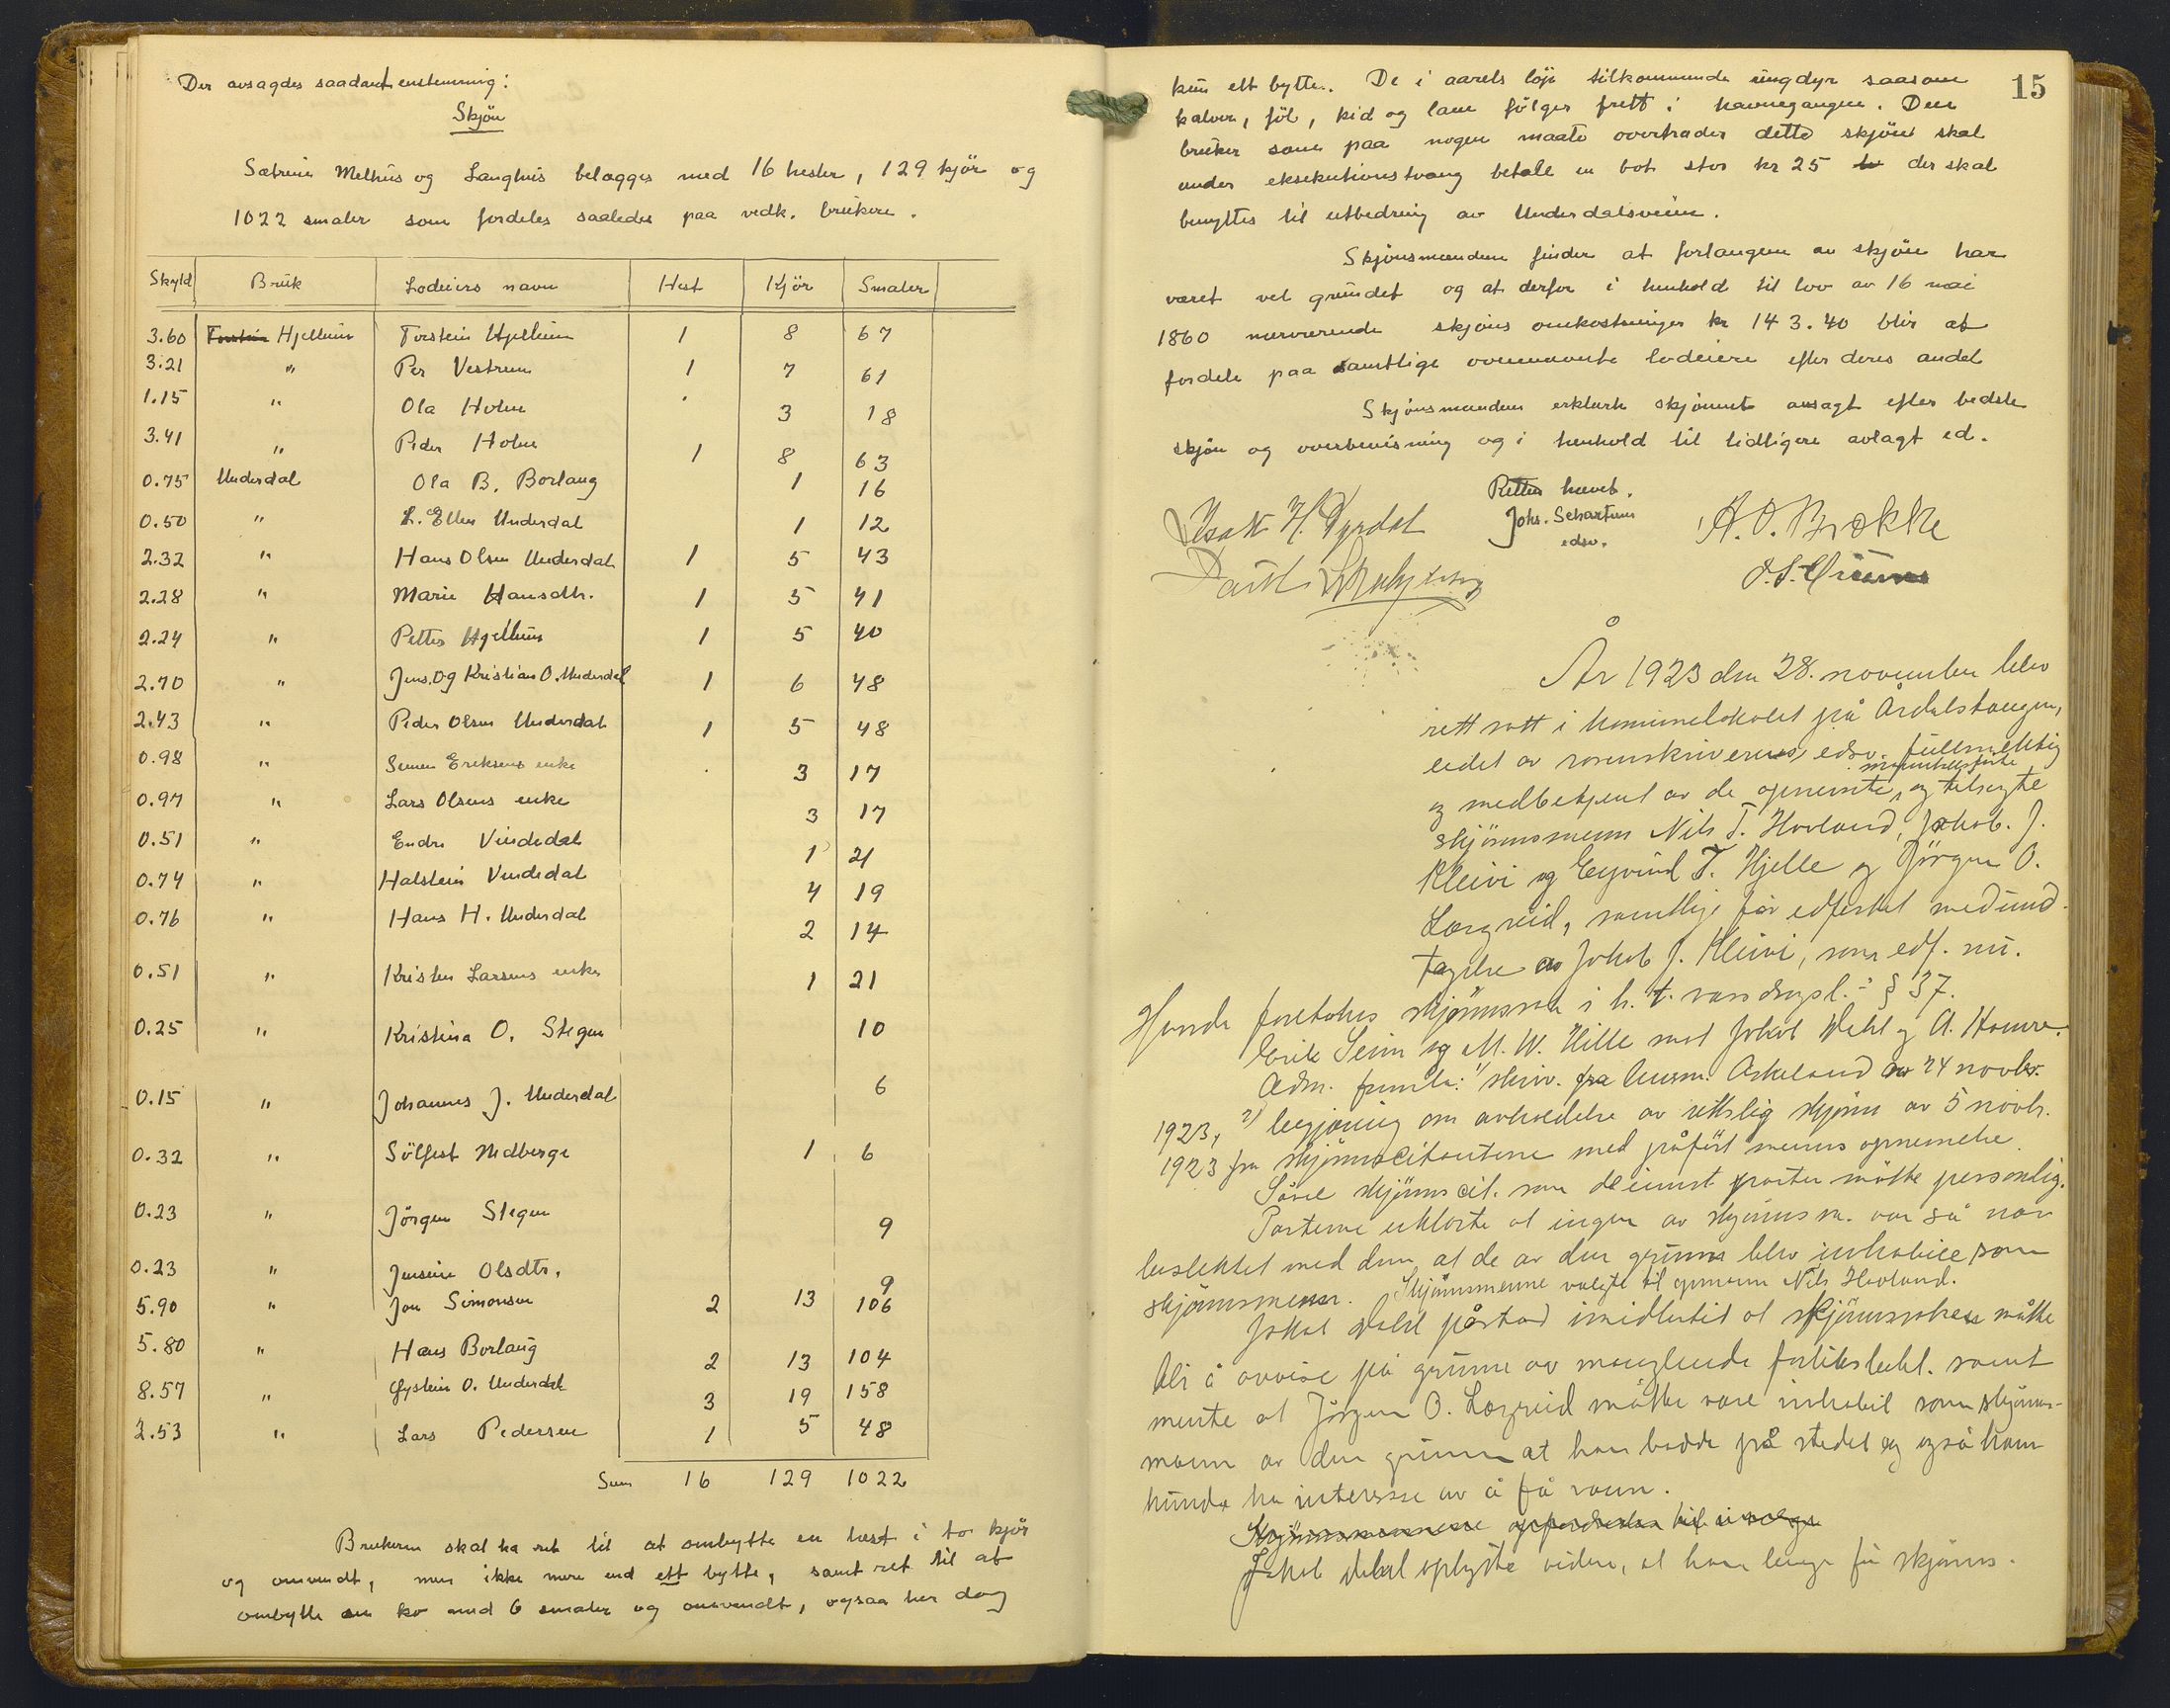 Der avsagdes saadant enstemmig:
Skjön
Sætrene Melhus og Langhus belægges med 16 hester, 129 kjör og
1022 smaler som fordeles saaledes paa vedk. brukere.
Skyld Bruk Lodeiers navn Hest Kjör Smaler
3.60 Torstein Hjellum Torstein Hjellum 1 8 67
3.21 " Per Vestrum 1 7 61
1.15 " Ola Holm 3 18
3.41 " Peder Holm 1 8 63
0.75 Underdal Ola B. Borlaug 1 16
0.50 " L. Ellen Underdal 1 12
2.32 " Hans Olsen Underdal 1 5 43
2.28 " Marie Hansdtr. 1 5 41
2.24 " Petter Hjellum 1 5 40
2.70 " Jens. og Kristian O. Underdal 1 6 48
2.43 " Peder Olsen Underdal 1 5 48
0.98 " Simen Eriksens enke 3 17
0.97 " Lars Olsens enke 3 17
0.51 " Endre Vindedal 1 21
0.74 " Halstein Vindedal 4 19
0.76 " Hans H. Underdal 2 14
0.51 " Kristen Larsens enke 1 21
0.25 " Kristina O. Stegen 10
0.15 " Johannes J. Underdal 6
0.32 " Sölfest Nedberge 1 6
0.23 " Jörgen Stegen 9
0.23 " Jensine Olsdtr. 9
5.90 " Jon Simonsen 2 13 106
5.80 " Hans Borlaug 2 13 104
8.57 " Øystein O. Underdal 3 19 158
2.53 " Lars Pedersen 1 5 48
Sum 16 129 1022
Brukerne skal ha ret til at ombytte en hest i to kjör
og omvendt, men ikke mere end ett bytte, samt ret til at
ombytte en ko med 6 smaler og omvendt, ogsaa her dog
15
kun ett bytte. De i aarets löp tilkommende ungdyr saasom
kalver, föl, kid og lam fölger fritt i havnegangen. Den
bruker som paa nogen maate overtræder dette skjön skal
under eksekutionstvang betale en bot stor kr 25 der skal
benyttes til utbedring av Underdalsveien.
Skjönsmændene finder at forlangem av skjön har
været vel grundet og at derfor i henhold til lov av 16 mai
1860 nærværende skjöns omkostninger kr 143.40 blir at
fordele paa samtlige ovennævnte lodeiere efter deres andel
Skjönsmændene erklærte skjönnet avsagt efter bedste
skjön og overbevisning og i henhold til tidligere avlagt ed.
Retten hævet.
Isak H. Dyrdal Johs. Schartum A. O. Brekke
edsv.
År 1923 den 28. november blev
rett satt i kommunelokalet på Årdalstangen,
ledet av sorenskriverens edsv. fullmektig
og medbetjent av de opnevnte, og tilsagte
skjönnsmenn Nils T. Hovland, Jakob J.
Kleivi og Eyvind T. Hjelle og Jörgen O.
Lægreid, samtlige för edfestet med und-
tagelse av Jakob J. Kleivi, som edf. nu.
Hvorda foretokes skjönnssak i h. t. vassdragsl. § 37.
Erik Seim og M. W. Hille mot Jakob Dahl og A. Hamre.
Adm. freml: 1) skriv. fra lensm. Askeland av 24 novbr.
1923, 2) begjæring om avholdelse av rettslig skjönn av 5 novb.
1923 fra skjönnscitantene med påfört menns opnevnelse.
Såvel skjönnscit. som de innst. parter mötte personlig.
Partene erklærte at ingen av skjönnsm. var så nær
beslektet med dem at de av den grunn blev inhabile som
skjönnsmenn. Skjönnsmennene valgte til formann Nils Hovland.
Jakob Dahl påstod imidlertid at skjönnssaken måtte
bli å avvise på grunn av manglende forliksbeh. samt
mente at Jörgen O. Lægreid måtte være inhabil som skjönns-
mann av den grunn at han bodde på stedet og også han
kunde ha interesse av å få vann.
Jakob Dahl oplyste videre, at han lenge för skjönns-